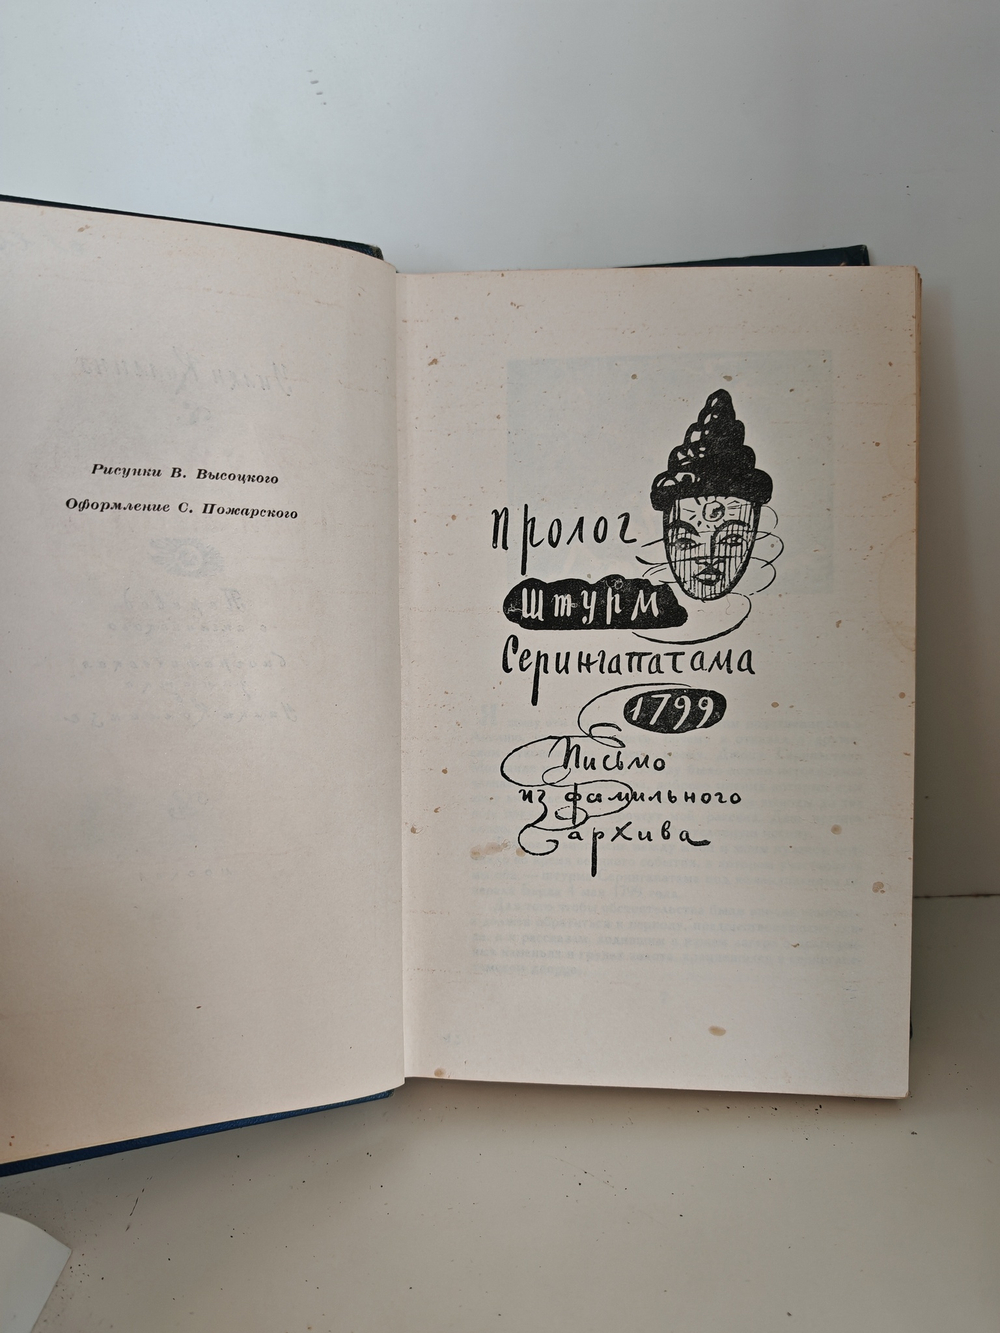 Рисунки В. Высоцкого
Оформление С. Пожарского
Пролог
Штурм
Серингапатама
1799
Письмо
из фамильного
архива